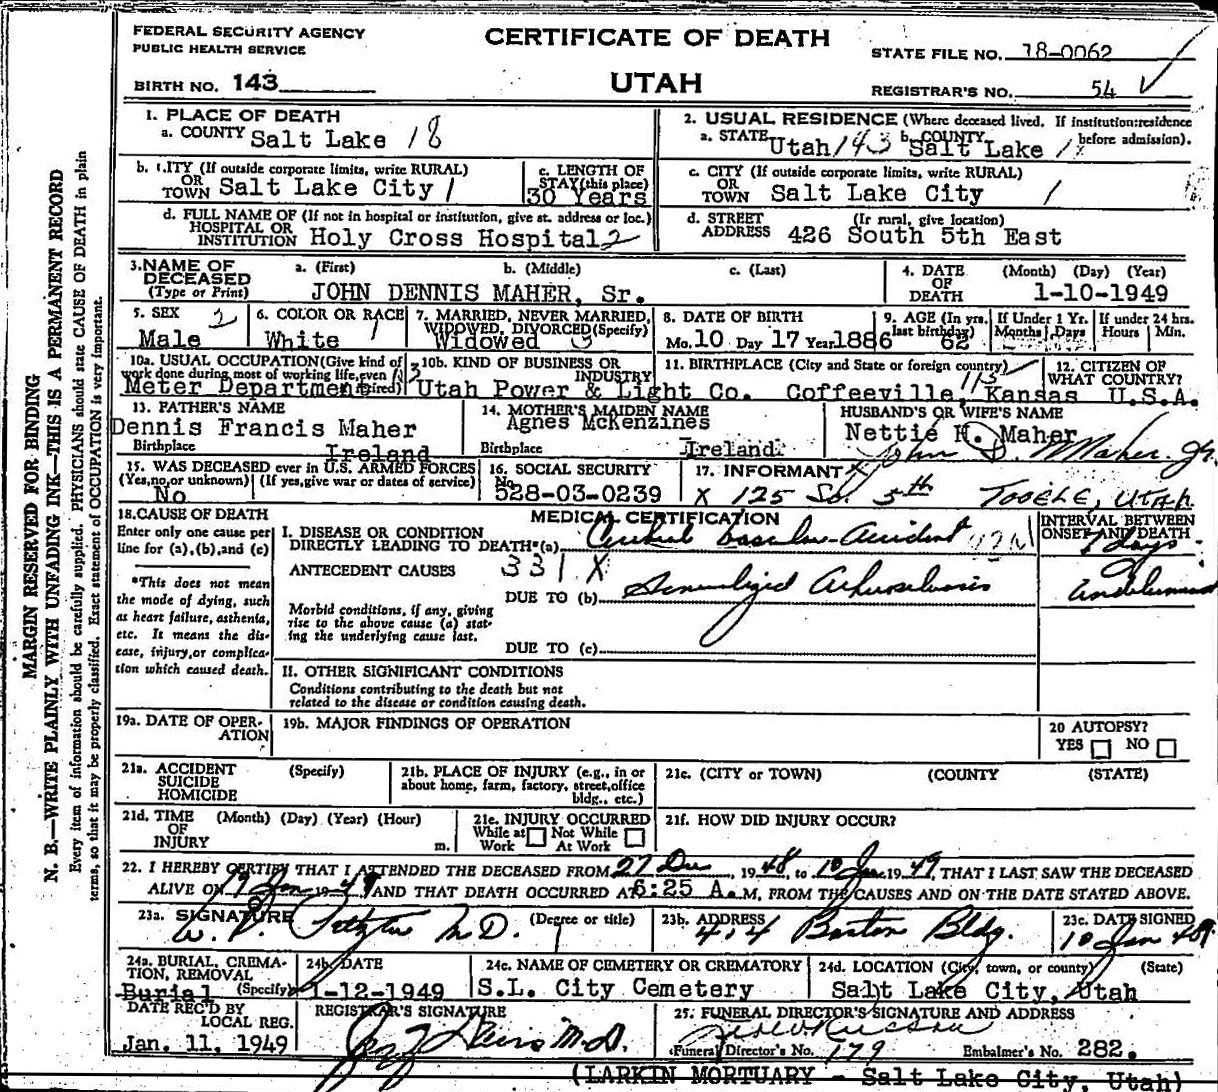 FEDERAL SECURITY AGENCY
PUBLIC HEALTH SERVICE
CERTIFICATE OF DEATH
STATE FILE NO. 18-0062
BIRTH NO. 143
UTAH
REGISTRAR'S NO. 54
MARGIN RESERVED FOR BINDING
N. B.—WRITE PLAINLY WITH UNFADING INK—THIS IS A PERMANENT RECORD
Every item of information should be carefully supplied. PHYSICIANS should state CAUSE OF DEATH in plain
terms, so that it may be properly classified. Exact statement of OCCUPATION is very important.
1. PLACE OF DEATH
a. COUNTY Salt Lake 18
2. USUAL RESIDENCE (Where deceased lived. If institution:residence
before admission).
a. STATE Utah 143 b. COUNTY Salt Lake
b. CITY (If outside corporate limits, write RURAL)
OR
TOWN Salt Lake City 1
c. LENGTH OF
STAY(this place)
30 Years
c. CITY (If outside corporate limits, write RURAL)
OR
TOWN Salt Lake City 1
d. FULL NAME OF (If not in hospital or institution, give st. address or loc.)
HOSPITAL OR
INSTITUTION Holy Cross Hospital 2
d. STREET (If rural, give location)
ADDRESS 426 South 5th East
3.NAME OF
DECEASED
(Type or Print)
a. (First) b. (Middle) c. (Last)
JOHN DENNIS MAHER, Sr.
4. DATE
OF
DEATH
(Month) (Day) (Year)
1-10-1949
5. SEX 2
Male
6. COLOR OR RACE
White 1
7. MARRIED, NEVER MARRIED,
WIDOWED, DIVORCED(Specify)
Widowed
8. DATE OF BIRTH
Mo.10 Day 17 Year1886
9. AGE (In yrs.
last birthday)
62
If Under 1 Yr.
Months Days
If under 24 hrs.
Hours Min.
10a. USUAL OCCUPATION(Give kind of
work done during most of working life,even if retired)
Meter Department
10b. KIND OF BUSINESS OR
INDUSTRY
Utah Power & Light Co.
11. BIRTHPLACE (City and State or foreign country)
Coffeeville, Kansas
12. CITIZEN OF
WHAT COUNTRY?
U.S.A.
13. FATHER'S NAME
Dennis Francis Maher
Birthplace Ireland
14. MOTHER'S MAIDEN NAME
Agnes McKenzines
Birthplace Ireland
HUSBAND'S OR WIFE'S NAME
Nettie H. Maher
15. WAS DECEASED ever in U.S. ARMED FORCES
(Yes,no,or unknown) (If yes,give war or dates of service)
No
16. SOCIAL SECURITY
No.
528-03-0239
17. INFORMANT X John D. Maher Jr.
X 125 So. 5th TOOELE, UTAH
18.CAUSE OF DEATH
Enter only one cause per
line for (a),(b),and (c)
*This does not mean
the mode of dying, such
as heart failure, asthenia,
etc. It means the dis-
ease, injury,or complica-
tion which caused death.
MEDICAL CERTIFICATION
I. DISEASE OR CONDITION
DIRECTLY LEADING TO DEATH*(a) Cerebral Vascular Accident
ANTECEDENT CAUSES 331 X
DUE TO (b) Generalized Arteriosclerosis
Morbid conditions, if any, giving
rise to the above cause (a) stat-
ing the underlying cause last.
DUE TO (c)
INTERVAL BETWEEN
ONSET AND DEATH
days
II. OTHER SIGNIFICANT CONDITIONS
Conditions contributing to the death but not
related to the disease or condition causing death.
19a. DATE OF OPER-
ATION
19b. MAJOR FINDINGS OF OPERATION
20 AUTOPSY?
YES NO
21a. ACCIDENT (Specify)
SUICIDE
HOMICIDE
21b. PLACE OF INJURY (e.g., in or
about home, farm, factory, street,office
bldg., etc.)
21c. (CITY or TOWN) (COUNTY (STATE)
21d. TIME (Month) (Day) (Year) (Hour)
OF
INJURY m.
21e. INJURY OCCURRED
While at Work Not While At Work
21f. HOW DID INJURY OCCUR?
22. I HEREBY CERTIFY THAT I ATTENDED THE DECEASED FROM 27 Dec, 1948, to 10 Jan 1949, THAT I LAST SAW THE DECEASED
ALIVE ON 9 Jan 1949 AND THAT DEATH OCCURRED AT 6:25 A.M, FROM THE CAUSES AND ON THE DATE STATED ABOVE.
23a. SIGNATURE (Degree or title)
M.D.
23b. ADDRESS
414 Boston Bldg.
23c. DATE SIGNED
10 Jan 49
24a. BURIAL, CREMA-
TION, REMOVAL
(Specify)
Burial
24b. DATE
1-12-1949
24c. NAME OF CEMETERY OR CREMATORY
S.L. City Cemetery
24d. LOCATION (City, town, or county) (State)
Salt Lake City, Utah
DATE REC'D BY
LOCAL REG.
Jan. 11, 1949
REGISTRAR'S SIGNATURE
M.D.
25. FUNERAL DIRECTOR'S SIGNATURE AND ADDRESS
(Funeral Director's No. 179 Embalmer's No. 282.
(LARKIN MORTUARY - Salt Lake City, Utah)